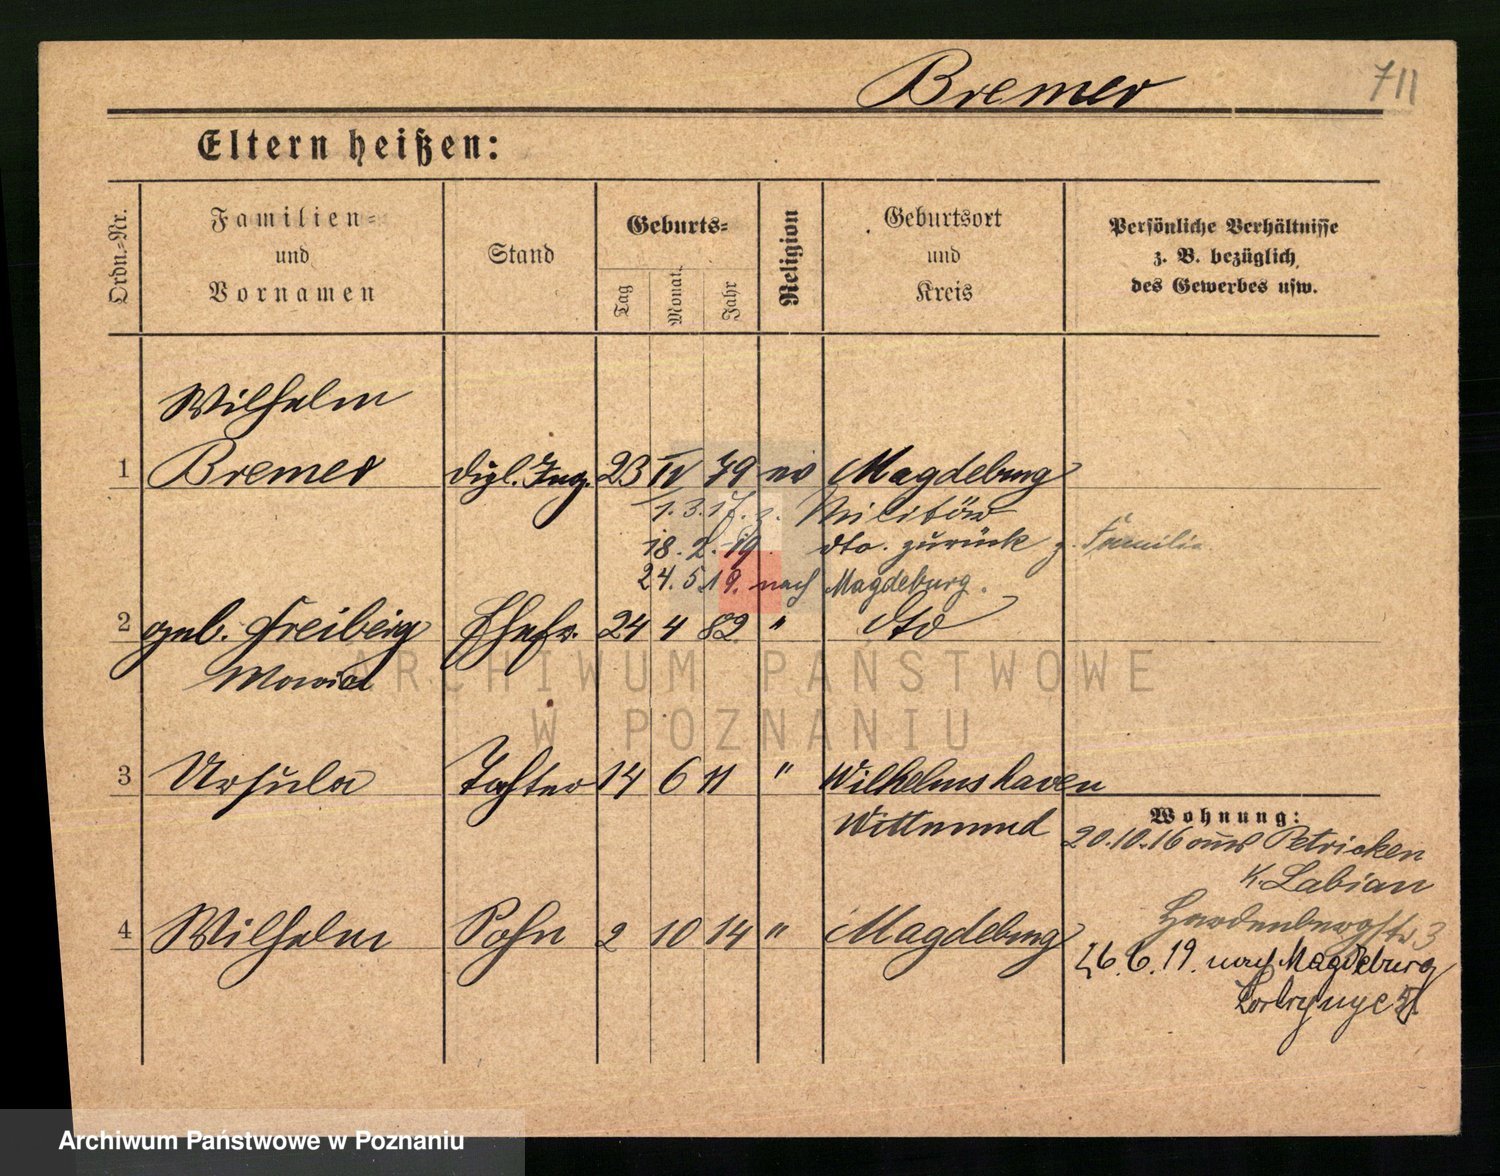 Bremer 711
Eltern heißen:
Ordn.-Nr.
Familien-
und
Vornamen
Stand
Geburts-
Tag
Monat
Jahr
Religion
Geburtsort
und
Kreis
Persönliche Verhältnisse
z. B. bezüglich
des Gewerbes usw.
Wilhelm
1 Bremer dipl. Ing. 23 IV 79 ev Magdeburg
1.3.17. z. Militär
18.2.19. dto. zurück z. Familie
24.5.19. nach Magdeburg.
2 geb. Freiberg Ehefr. 24 4 82 " dto
Maria
3 Ursula Tochter 14 6 11 " Wilhelmshaven
Wittmund
Wohnung:
20.10.16 aus Petricken
K. Labiau
4 Wilhelm Sohn 2 10 14 " Magdeburg
Hardenbergstr 3
26.6.19. nach Magdeburg
ARCHIWUM PAŃSTWOWE
W POZNANIU
Archiwum Państwowe w Poznaniu